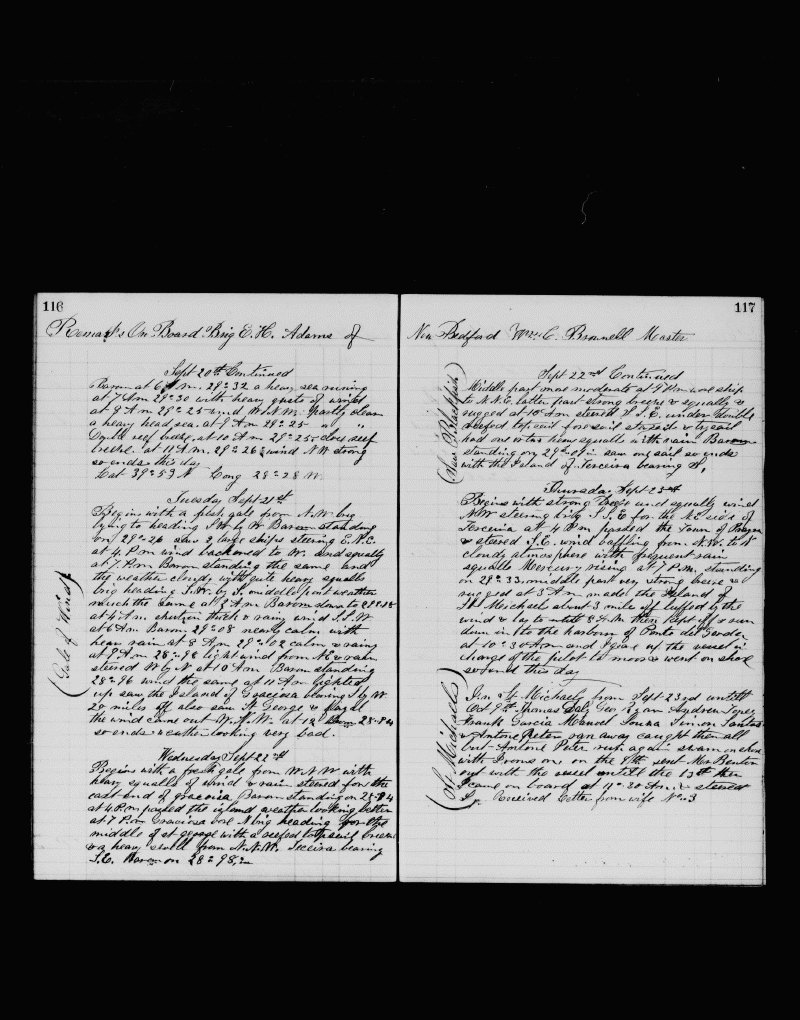 116
Remarks On Board Brig E. H. Adams of
Sept 20th Continued
Barom at 6 A.m. 29"32 a heavy sea running
at 7 Am 29"30 with heavy gusts of wind
at 8 Am 29"25 wind W.N.W. partly clear
a heavy head sea. at 9 Am 29"25 " "
Double reef breeze, at 10 Am 29"25 close reef
breeze. at 11 A.m. 29"26 wind NW strong
so ends this day
Lat 39"53 N Long 28"28 W
Tuesday Sept 21st
Begins with a fresh gale from N.W. brig
lying to heading SW by W Barom standing
on 29"26 saw 2 large ships steering E.N.E.
at 4 P.m wind backened to W. and squally
at 7 P.m Barom standing the same and
the weather cloudy with quite heavy squalls
brig heading S.W. by S. middle part weather
much the same at 3 Am Barom down to 29"18
at 4 Am shut in thick & rainy wind S.S.W
at 6 Am Barom 29"08 nearly calm with
heavy rain at 8 Am 29"02 calm & rainy
at 9 Am 28"98 light wind from NE & rain
steered W by N at 10 Am Barom standing
28"96 wind the same at 11 Am lighted
up saw the Island of Graciosa bearing S by W
20 miles off also saw St George & Fayal
the wind came out W.N.W. at 12 Barom 28"84
so ends weather looking very bad.
(Gale of Wind)
Wednesday Sept 22nd
Begins with a fresh gale from W.N.W with
heavy squalls of wind & rain steered for the
east end of graciosa Barom standing on 28"84
at 4 P.m passed the island weather looking better
at 7 P.m Graciosa bore N brig heading for the
middle of st george with a reefed topsail breeze
& a heavy swell from N.N.W. Terceira bearing
S.E. Barom on 28"98 in
117
New Bedford Wm. C. Brownell Master
Sept 22nd Continued
Middle part more moderate at 9 P.m wore ship
to N.N.E. latter part strong breeze & squally &
rugged at 10 Am steered S.E. under double
reefed topsail foresail staysail & trysail
had one or two heavy squalls with rain Barom
standing on 29"09 in saw one sail so ends
with the Island of Terceira bearing S,
(Saw Blackfish)
Thursday Sept 23rd
Begins with strong breeze and squally wind
NW steering brig S.S.E for the N.E side of
Terceira at 4 P.m passed the Town of Praya
& steered S.E. wind baffling from N.W. to N
cloudy atmosphere with frequent rain
squalls Mercury rising at 7 P.m. standing
on 29"33. middle part very strong breeze &
rugged at 3 Am made the Island of
St Michael about 3 mile off luffed by the
wind & lay to untill 8 A.m. then kept off & run
down into the harbour of Ponta del Gorder
at 10"30 Am and I gave up the vessel in
charge of the pilot to moor & went on shore
so ends this day
In St Michaels from Sept 23rd untill
Oct 9th Thomas Daly Geo Ryan Andrew Lopez
Frank Garcia Manuel Souza Simion Santos
& Antone Peter ran away caught them all
but Antone Peter run again swam on shore
with Irons on on the 9th sent Mr Benton
out with the vessel untill the 13th then
I came on board at 11"30 Am. & steered
S. Received Letter from wife No 3
(St Michaels)